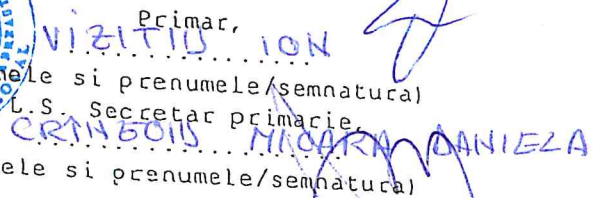 Primar,
VIZITIU ION
ele si prenumele/semnatura)
L.S. Secretar primarie,
DANIELA
ele si prenumele/semnatura)